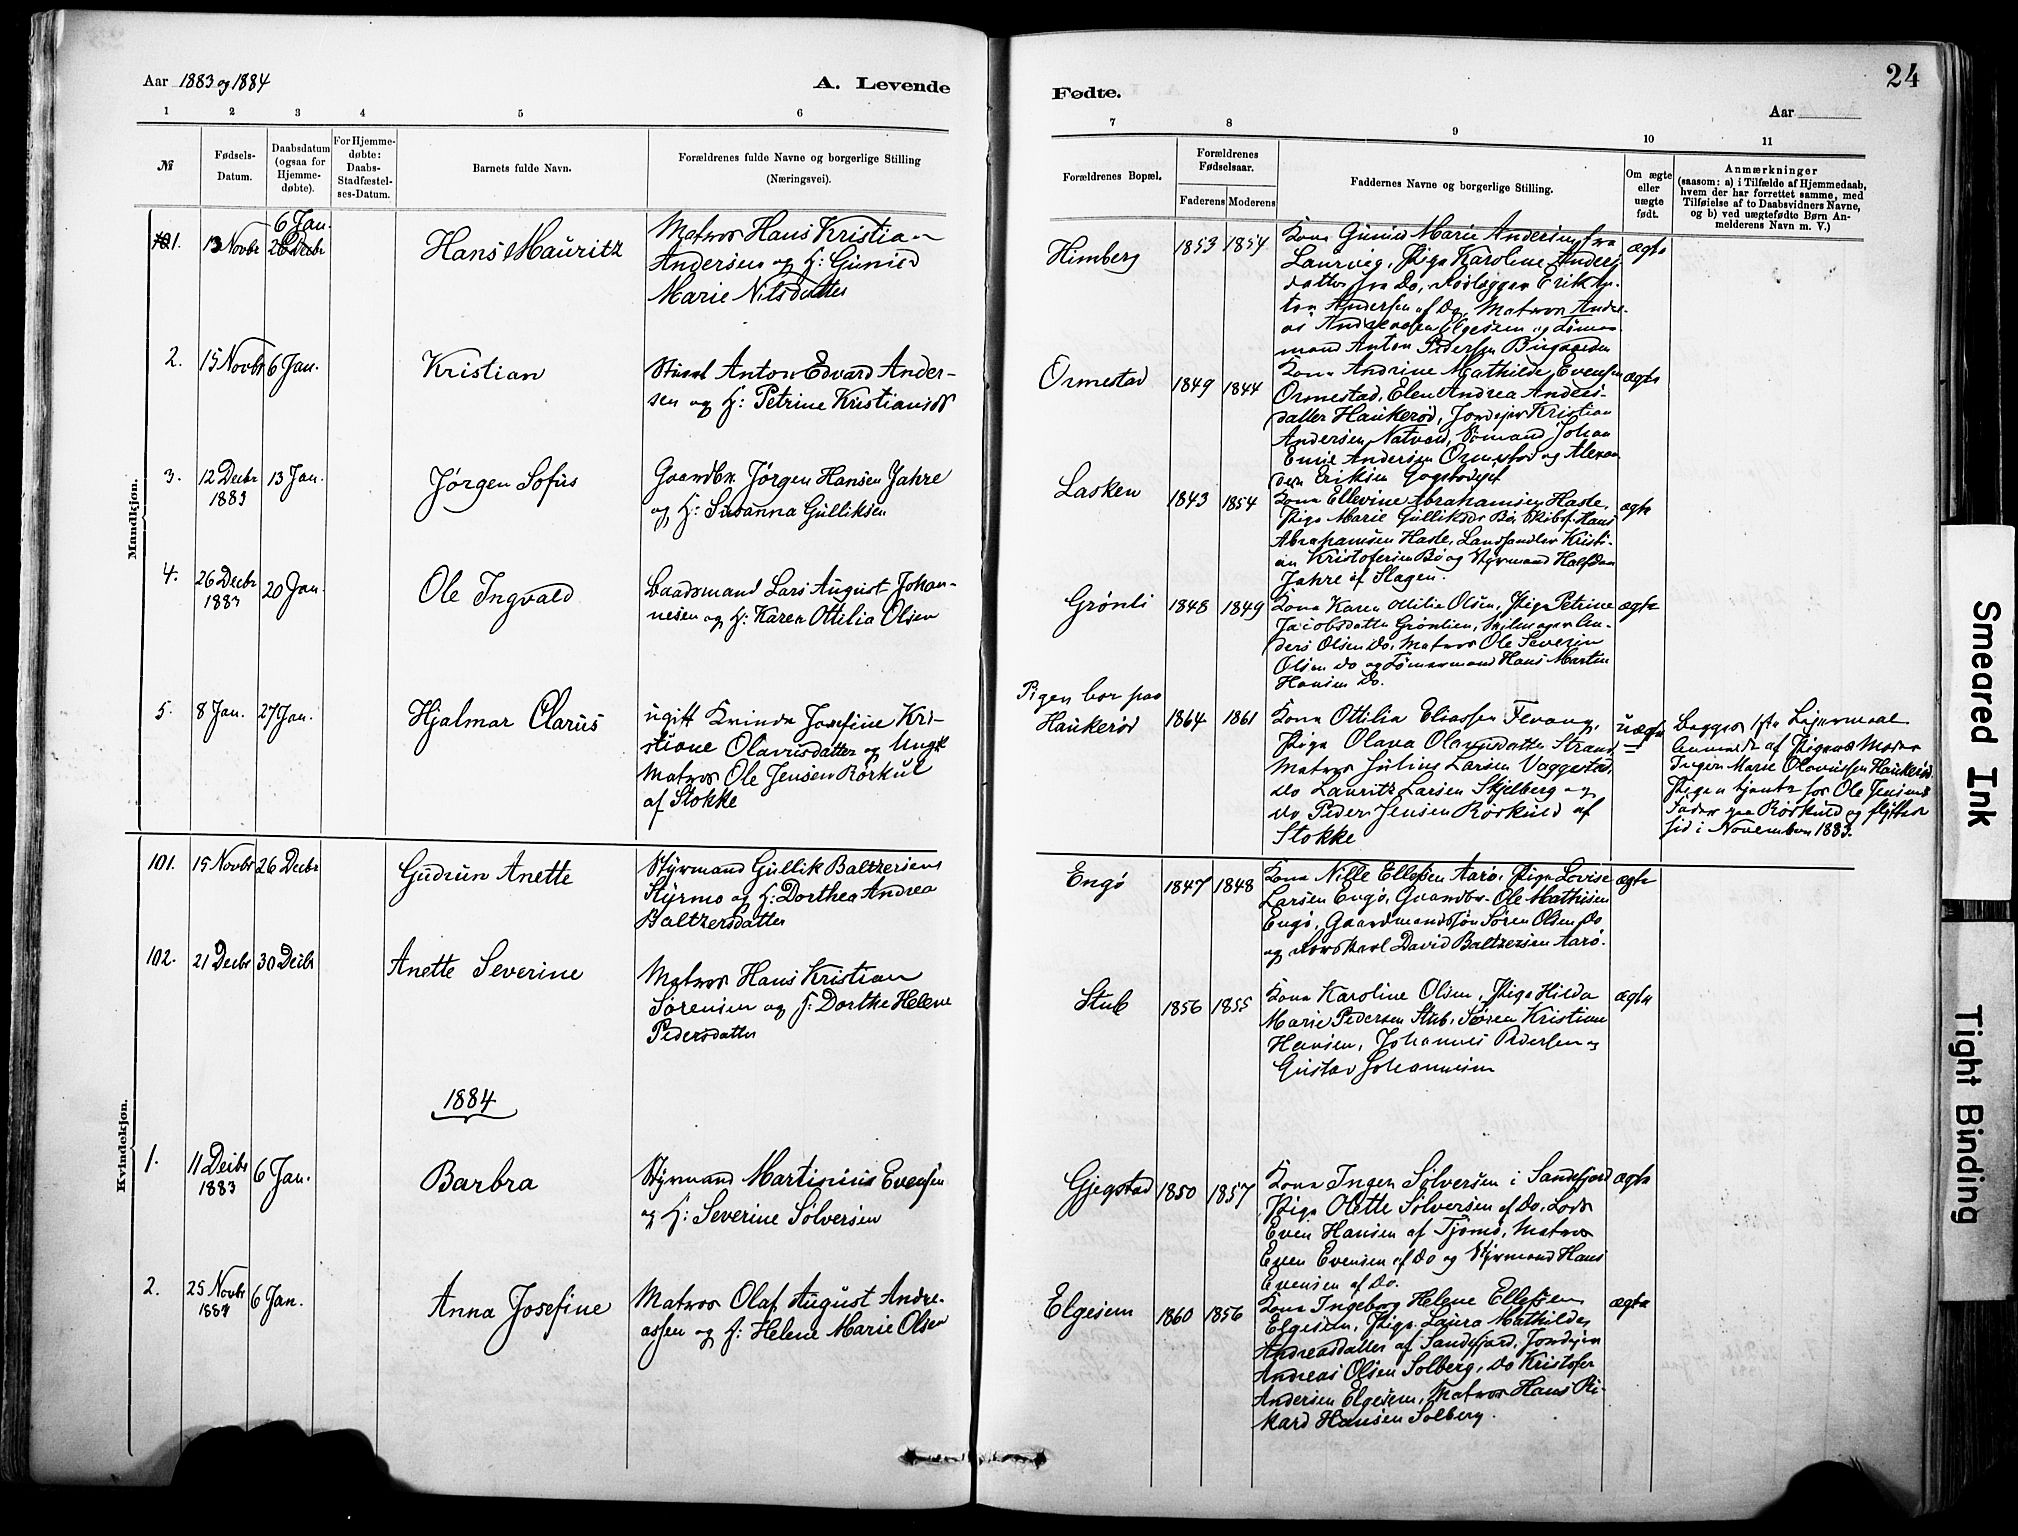 Aar 1883 og 1884
A. Levende
Fødte.
24
Aar
1 2 3 4 5 6 7 8 9 10 11
№
Fødsels-
Datum.
Daabsdatum
(ogsaa for
Hjemme-
døbte).
For Hjemme-
døbte:
Daabs-
Stadfæstel-
ses-Datum.
Barnets fulde Navn.
Forældrenes fulde Navne og borgerlige Stilling
(Næringsvei).
Forældrenes Bopæl.
Forældrenes
Fødselsaar.
Faderens Moderens
Faddernes Navne og borgerlige Stilling.
Om ægte
eller
uægte
født.
Anmærkninger
(saasom: a) i Tilfælde af Hjemmedaab,
hvem der har forrettet samme, med
Tilføielse af to Daabsvidners Navne,
og b) ved uægtefødte Børn An-
melderens Navn m. V.)
Mandkjøn.
1.
13 Novbr
6 Jan.
26 Decbr
Hans Mauritz
Matros Hans Kristian
Andersen og H: Gunild
Marie Nilsdatter
Himberg
1853 1854
Kona Gunild Marie Andersen fra
Laurveg, Pige Karoline Anders
datter fra Do,
Erik An-
ton Andersen af Do, Matros Andre-
as Andreassen Elgesem og Tømer-
mand Anton Pedersen
ægte
2.
15 Novbr
6 Jan.
Kristian
Anton Edvard Ander-
sen og H: Petrine Kristiansdr
Ormestad
1849 1844
Kona Andrine Mathilde Evensen
Ormestad, Elen Andrea Anders-
datter Haukerød, Jordejer Kristian
Andersen Natvad, Sømand Johan
Emil Andersen Ormestad og Alexan
der Eriksen
ægte
3.
12 Decbr
1883
13 Jan.
Jørgen Sofus
Gaardbr. Jørgen Hansen Jahre
og H: Susanna Gulliksen
Lasken
1843 1854
Kona Ellevine Abrahamsen Hasle,
Pige Marie Gulliksdr Bø, Skibsf. Hans
Abrahamsen Hasle, Landhandler Kristi-
an Kristofersen Bø og Styrmand Halfdan
Jahre af Slagen.
ægte
4.
26 Decbr
1883
20 Jan.
Ole Ingvald
Baadsmand Lars August Johan-
nesen og H: Karen Ottilia Olsen
Grønli
1848 1849
Kona Karen Ottilia Olsen, Pige Petrine
Jacobsdatter Grønlien, Seilmager An-
ders Olsen Do, Matros Ole Severin
Olsen Do og Tømermand Hans Martin
Hansen Do.
ægte
5.
8 Jan.
27 Jan.
Hjalmar Clarus
ugift Kvinde Josefine Kri-
stiane Olavusdatter og Ungk
Matros Ole Jensen Rørkul
af Stokke
Pigen bor paa
Haukerød
1864 1861
Kona Ottilia Eliassen Fevang,
Pige Olava Olavusdatter Strand,
Matros Julius Larsen Vaggestad,
Do Lauritz Larsen Skjelberg og
Do Peder Jensen Rørkuld af
Stokke
uægte
Begges 1ste Lejermaal
Anmeldt af Pigens Moder
Inger Marie Olavussen Haukerød.
Pigen tjente hos Ole Jensens
Fader paa Rørkuld og flyttede
hid i November 1883.
Kvindekjøn.
101.
15 Novbr
26 Decbr
Gudrun Anette
Styrmand Gullik Baltzersens
Styrmo og H: Dorthea Andrea
Baltzersdatter
Engø
1847 1848
Kona Nille Ellefsen Aarø, Pige Lovise
Larsen Engø, Gaardbr Ole Mathisen
Engø, Gaardmandssøn Søren Olsen Do
og
David Baltzersen Aarø.
ægte
102.
21 Decbr
30 Decbr
Anette Severine
Matros Hans Kristian
Sørensen og H: Dorthe Helene
Pedersdatter
Stub
1856 1855
Kona Karoline Olsen, Pige Hilda
Marie Pedersen Stub, Søren Kristian
Hansen, Johannes Pedersen og
Gustav Johannesen
ægte
1884
1.
11 Decbr
1883
6 Jan.
Barbra
Styrmand Martinius Evensen
og H: Severine Sølversen
Gjegstad
1850 1857
Kona Inger Sølversen i Sandefjord
Pige Olette Sølversen af Do, Lods
Even Hansen af Tjømø, Matros
Even Evensen af Do og Styrmand Hans
Evensen af Do.
ægte
2.
25 Novbr
1884
6 Jan.
Anna Josefine
Matros Olaf August Andre-
assen og H: Helene Marie Olsen
Elgesem
1860 1856
Kona Ingeborg Helene Ellefsen
Elgesem, Pige Laura Mathilde
Andreasdatter af Sandefjord, Jordejer
Andreas Olsen Solberg, Do Kristofer
Andersen Elgesem, Matros Hans Ri-
kard Hansen Solberg.
ægte
Smeared Ink
Tight Binding